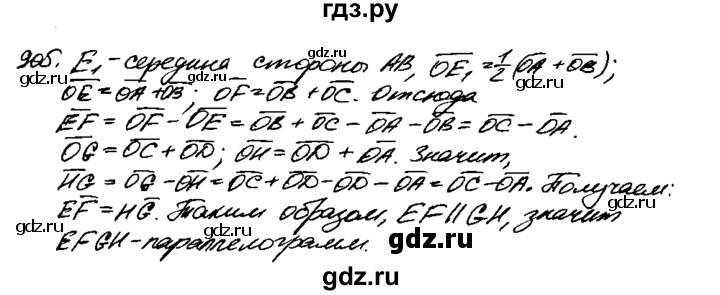 гдз.ру
905. E₁-середина стороны AB, OE₁ = 1/2(OA + OB);
OE = OA + OB; OF = OB + OC. Отсюда
EF = OF - OE = OB + OC - OA - OB = OC - OA.
OG = OC + OD; OH = OD + OA. Значит,
HG = OG - OH = OC + OD - OD - OA = OC - OA. Получаем:
EF = HG. Таким образом, EF || GH, значит
EFGH-параллелограмм.
gdz.ru
gdz.ru